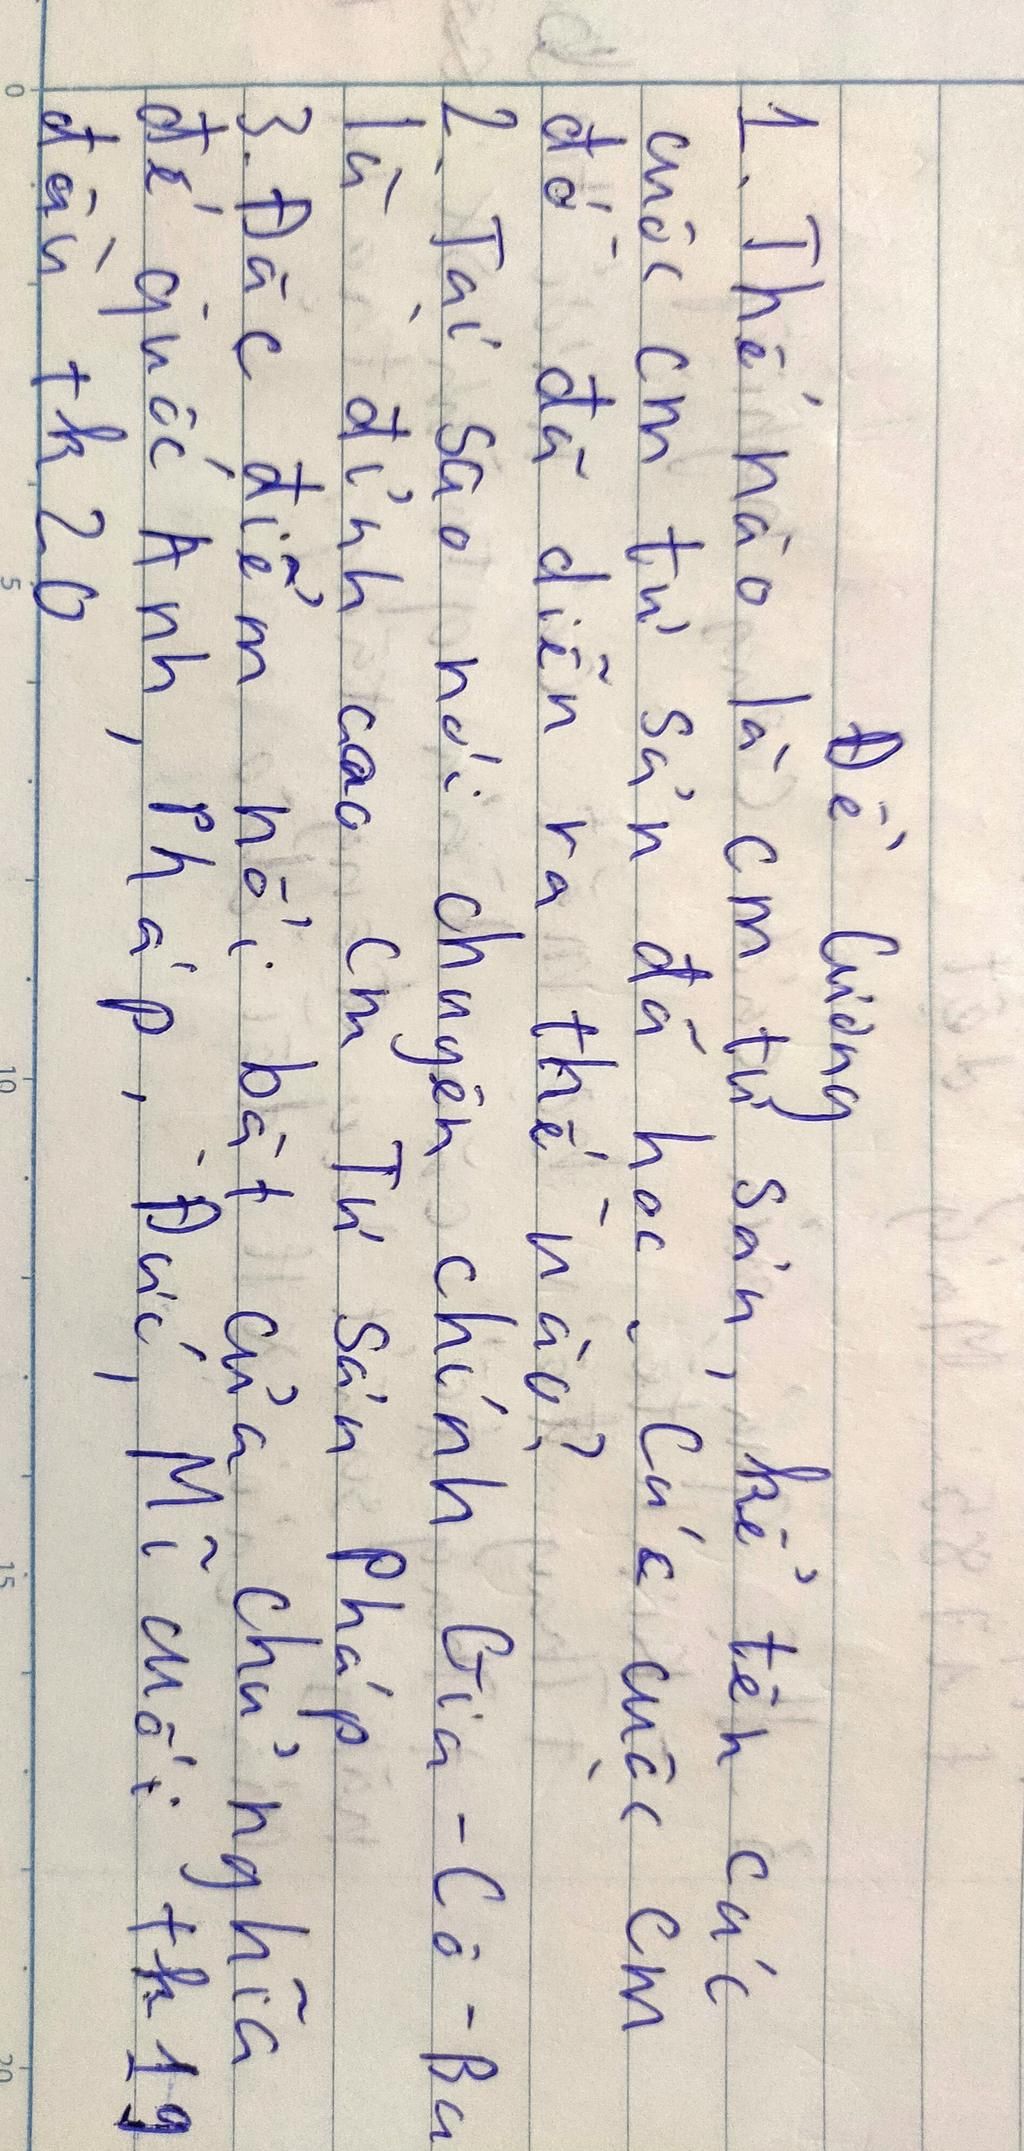 Đề Cương
1. Thế nào là cm tư sản, kể tên các
cuộc cm tư sản đã học. Các cuộc cm
đó đã diễn ra thế nào?
2. Tại sao nói chuyên chính Gia-Cô-Ba
là đỉnh cao cm Tư sản Pháp
3. Đặc điểm nổi bật của chủ nghĩa
đế quốc Anh, Pháp, Đức, Mĩ cuối tk 19
đến tk 20
0 5 10 15 20